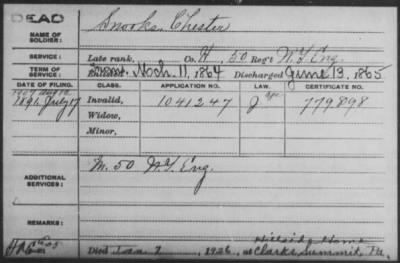 DEAD
NAME OF SOLDIER: Snooks, Chester
SERVICE: Late rank, Co. H, 50 Reg't N.Y. Eng.
TERM OF SERVICE: Enlisted Mch. 11, 1864 Discharged June 13, 1865
DATE OF FILING. CLASS. APPLICATION NO. LAW. CERTIFICATE NO.
1891 July 17 Invalid, 1041247 J 779898
Widow,
Minor,
ADDITIONAL SERVICES: M. 50 N.Y. Eng.
REMARKS:
Hillside Home
Died Jan. 7, 1926, at Clarks Summit, Pa.